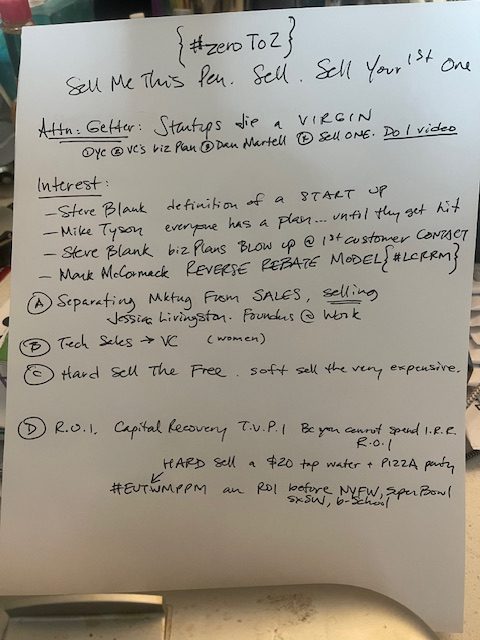 {#zeroToZ}
Sell Me This Pen. Sell. Sell Your 1st One
Attn: Getter: Startups die a VIRGIN
① yc ② VC's biz Plan ③ Dan Martell ④ Sell ONE. Do 1 video
Interest:
- Steve Blank definition of a START UP
- Mike Tyson everyone has a plan... until they get hit
- Steve Blank biz Plans BLOW up @ 1st customer CONTACT
- Mark McCormack REVERSE REBATE MODEL {#LCRRM}
Ⓐ Separating Mktng From SALES, selling
Jessica Livingston. Founders @ Work
Ⓑ Tech Sales → VC (women)
Ⓒ Hard Sell The Free. soft sell the very expensive.
Ⓓ R.O.I. Capital Recovery T.V.P.I Bc you cannot spend I.R.R.
R.O.I
HARD sell a $20 tap water + PIZZA party
#EUTWMPPM an ROI before NYFW, Super Bowl
SXSW, b-School